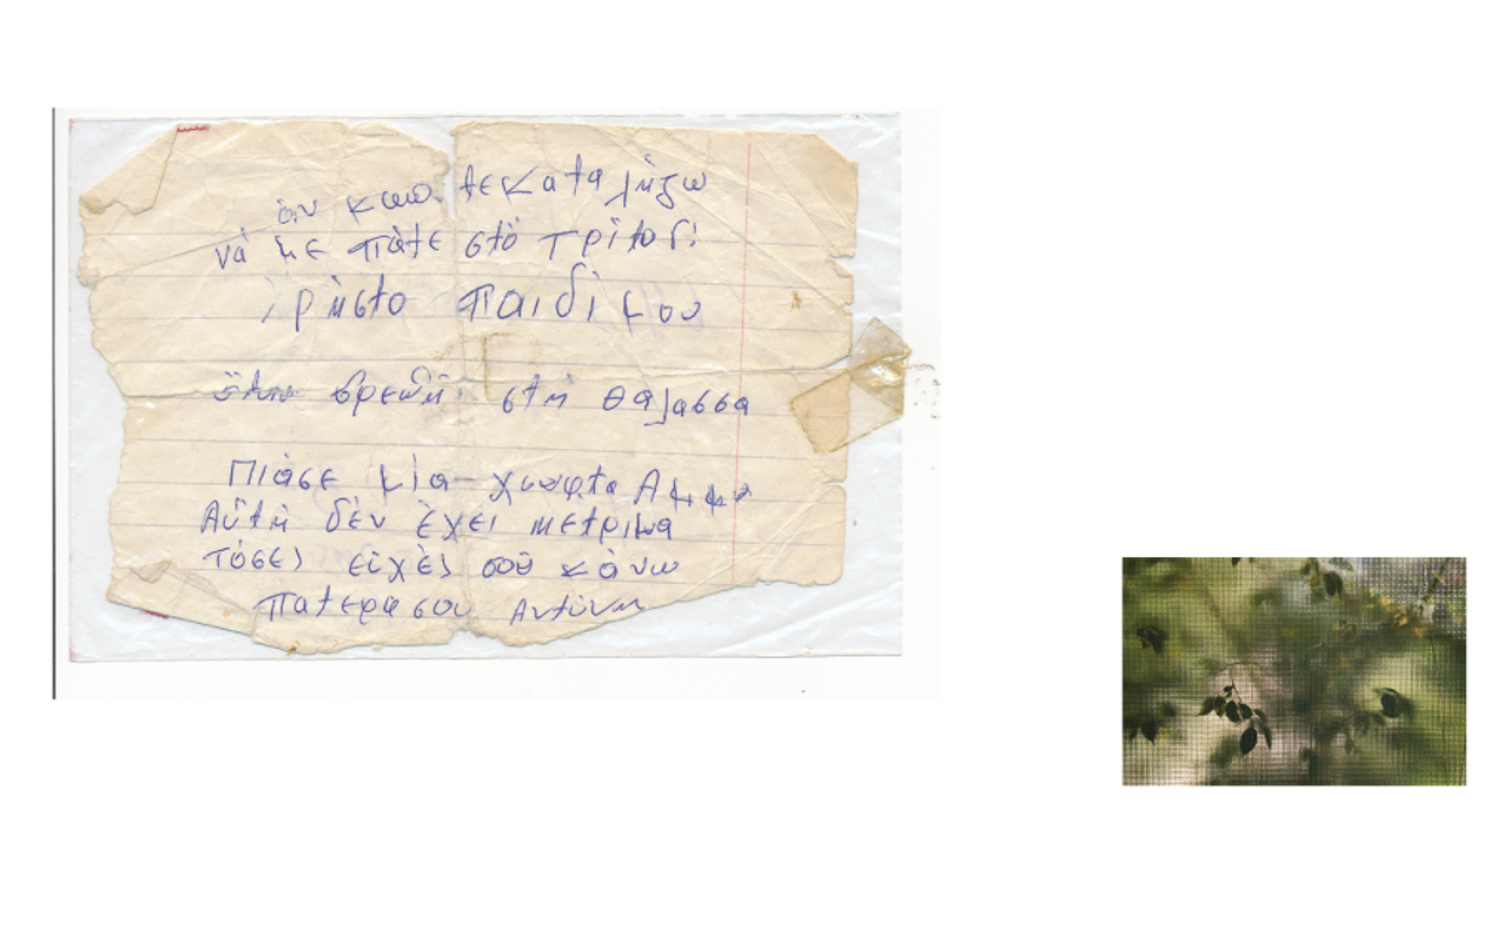 ἂν κάπο τε καταλήξω
νά με πάτε στὸ τρίτο
Χρήστο παιδί μου
ὅταν βρεθῆ στὴ θαλασσα
Πιάσε μία χουφτα Αμμο
Αὐτὴ δὲν ἔχει μετριμα
τόσες εὐχὲς σοῦ κάνω
πατερα σου Αντώνη